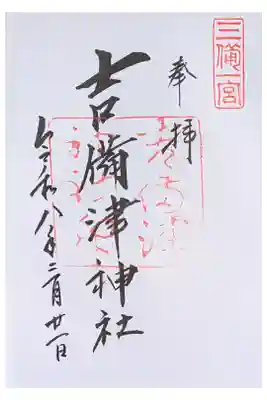 三備一宮
奉拝
吉備津神社
令和八年二月廿一日